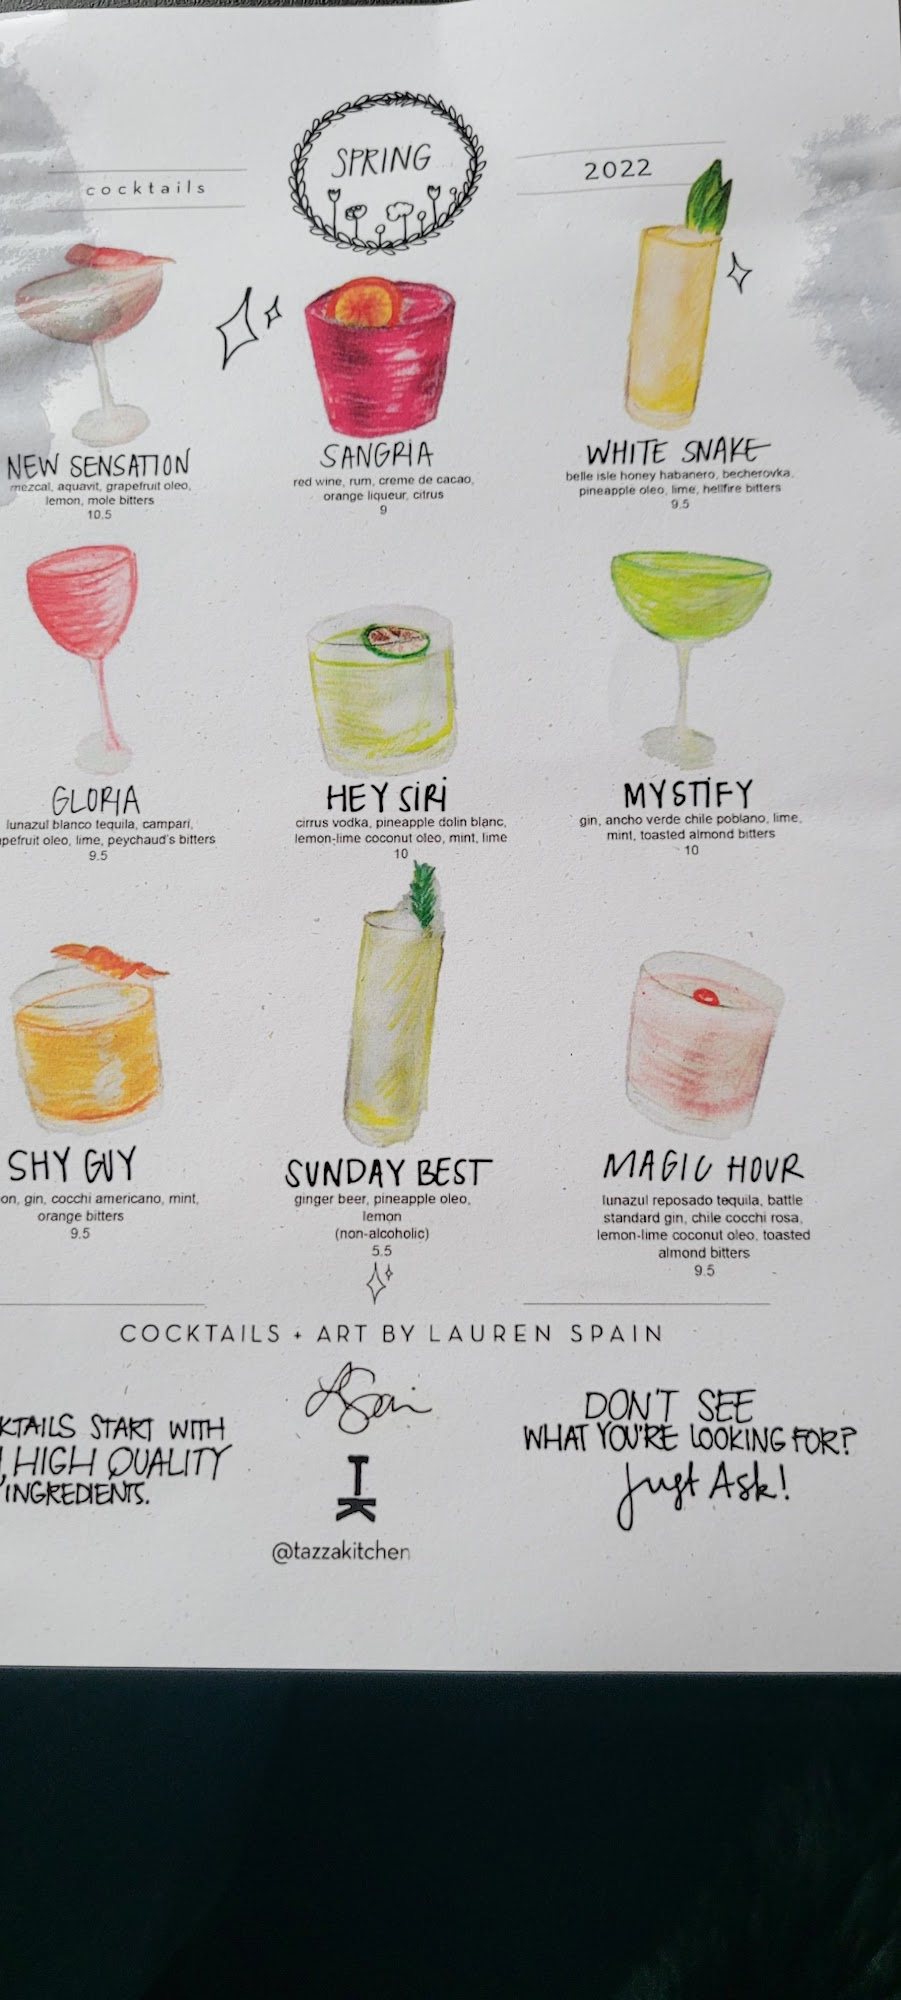 cocktails
SPRING
2022
NEW SENSATION
mezcal, aquavit, grapefruit oleo,
lemon, mole bitters
10.5
SANGRIA
red wine, rum, creme de cacao,
orange liqueur, citrus
9
WHITE SNAKE
belle isle honey habanero, becherovka,
pineapple oleo, lime, hellfire bitters
9.5
GLORIA
lunazul blanco tequila, campari,
pefruit oleo, lime, peychaud's bitters
9.5
HEY SIRI
cirrus vodka, pineapple dolin blanc,
lemon-lime coconut oleo, mint, lime
10
MYSTIFY
gin, ancho verde chile poblano, lime,
mint, toasted almond bitters
10
SHY GUY
on, gin, cocchi americano, mint,
orange bitters
9.5
SUNDAY BEST
ginger beer, pineapple oleo,
lemon
(non-alcoholic)
5.5
MAGIC HOUR
lunazul reposado tequila, battle
standard gin, chile cocchi rosa,
lemon-lime coconut oleo, toasted
almond bitters
9.5
COCKTAILS + ART BY LAUREN SPAIN
KTAILS START WITH
, HIGH QUALITY
INGREDIENTS.
TK
@tazzakitchen
DON'T SEE
WHAT YOU'RE LOOKING FOR?
Just Ask!